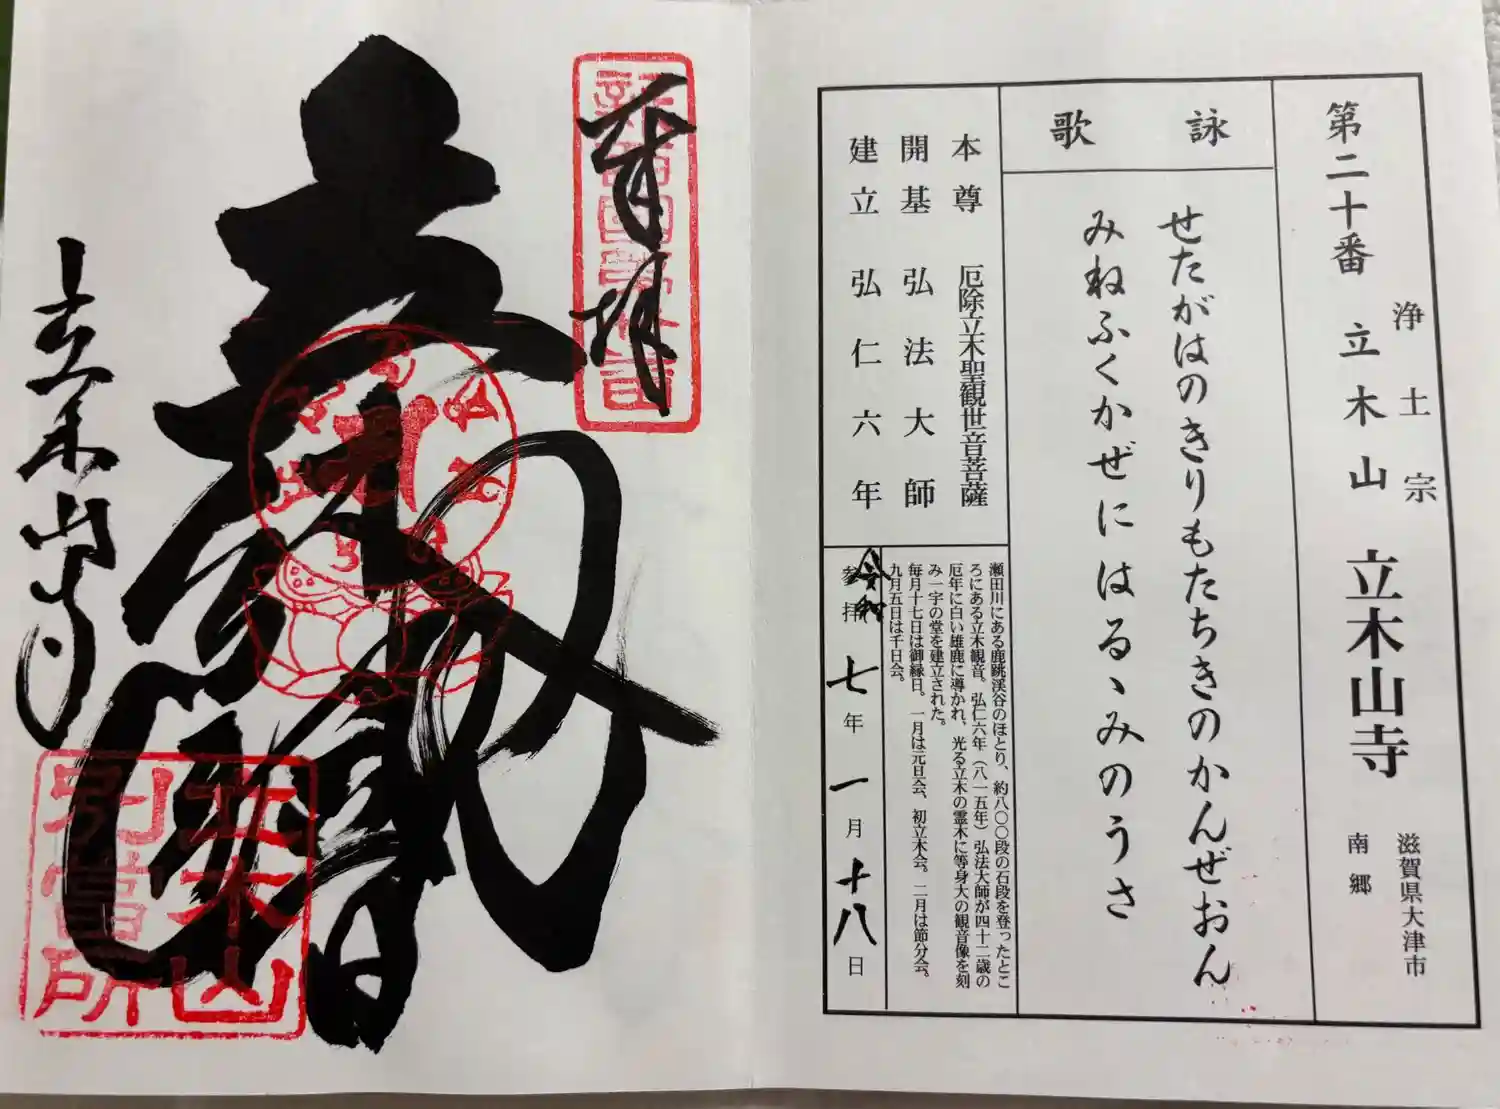 第二十番 立木山 立木山寺
浄土宗
滋賀県大津市
南郷
詠歌
せたがはのきりもたちきのかんぜおん
みねふくかぜにはるゝみのうさ
本尊 厄除立木聖観世音菩薩
開基 弘法大師
建立 弘仁六年
瀬田川にある鹿跳渓谷のほとり、約八〇〇段の石段を登ったとこ
ろにある立木観音。弘仁六年（八一五年）弘法大師が四十二歳の
厄年に白い雄鹿に導かれ、光る立木の霊木に等身大の観音像を刻
み一宇の堂を建立された。
毎月十七日は御縁日。一月は元旦会、初立木会。二月は節分会。
九月五日は千日会。
参拝 令和七年一月十八日
奉拝
立木山寺
立木山
別當所